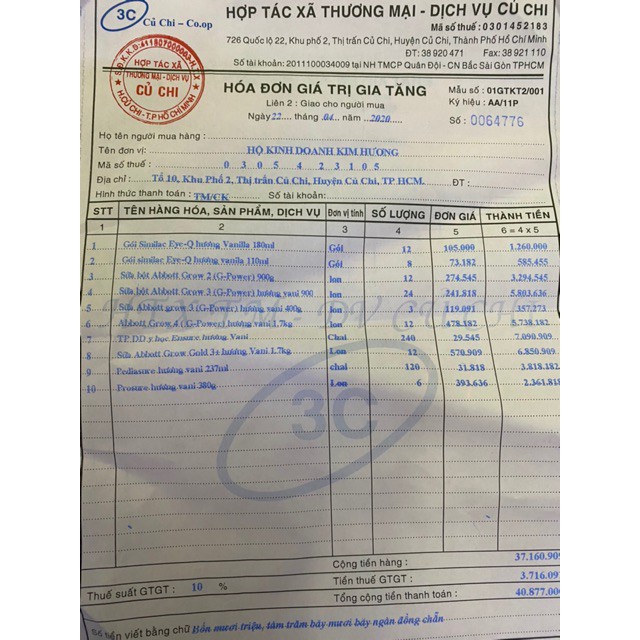 3C Củ Chi - Co.op
HỢP TÁC XÃ THƯƠNG MẠI - DỊCH VỤ CỦ CHI
Mã số thuế : 0301452183
726 Quốc lộ 22, Khu phố 2, Thị trấn Củ Chi, Huyện Củ Chi, Thành Phố Hồ Chí Minh
ĐT: 38 920 471 Fax: 38 921 110
Số tài khoản: 2011100034009 tại NH TMCP Quân Đội - CN Bắc Sài Gòn TPHCM
HỢP TÁC XÃ
THƯƠNG MẠI - DỊCH VỤ
CỦ CHI
H.CỦ CHI - T.P HỒ CHÍ MINH
HÓA ĐƠN GIÁ TRỊ GIA TĂNG
Mẫu số : 01GTKT2/001
Liên 2 : Giao cho người mua
Ký hiệu : AA/11P
Ngày 22 tháng 04 năm 2020
Số : 0064776
Họ tên người mua hàng :
Tên đơn vị: HỘ KINH DOANH KIM HƯƠNG
Mã số thuế : 0 3 0 5 4 2 3 1 0 5
Địa chỉ : Tổ 10, Khu Phố 2, Thị trấn Củ Chi, Huyện Củ Chi, TP HCM. ĐT :
Hình thức thanh toán : TM/CK Số tài khoản:
STT TÊN HÀNG HÓA, SẢN PHẨM, DỊCH VỤ Đơn vị tính SỐ LƯỢNG ĐƠN GIÁ THÀNH TIỀN
1 2 3 4 5 6 = 4 x 5
1 Gói Similac Eye-Q hương Vanilla 180ml Gói 12 105.000 1.260.000
2 Gói similac Eye-Q hương vanilla 110ml Gói 8 73.182 585.455
3 Sữa bột Abbott Grow 2 (G-Power) 900g lon 12 274.545 3.294.545
4 Sữa bột Abbott Grow 3 (G-Power) hương vani 900 lon 24 241.818 5.803.636
5 Sữa Abbott grow 3 (G-Power) hương vani 400g lon 3 119.091 357.273
6 Abbott Grow 4 (G-Power) hương vani 1.7kg lon 12 478.182 5.738.182
7 TP DD y học Ensure hương Vani Chai 240 29.545 7.090.909
8 Sữa Abbott Grow Gold 3+ hương vani 1.7kg Lon 12 570.909 6.850.909
9 Pediasure hương vani 237ml chai 120 31.818 3.818.182
10 Prosure hương vani 380g Lon 6 393.636 2.361.818
3C
Cộng tiền hàng : 37.160.909
Thuế suất GTGT : 10 % Tiền thuế GTGT : 3.716.091
Tổng cộng tiền thanh toán : 40.877.000
Số tiền viết bằng chữ Bốn mươi triệu, tám trăm bảy mươi bảy ngàn đồng chẵn